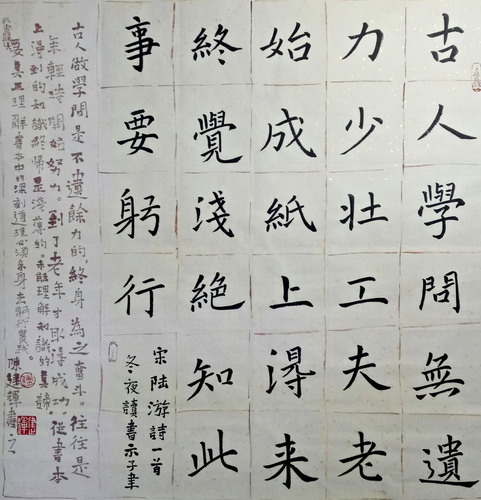 古人學問無遺
力少壯工夫老
始成紙上淂来
終覺淺絕知此
事要躬行
宋陸游詩一首
冬夜讀書示子聿
古人做學問是不遺餘力的,終身為之奮斗。往往是
年輕時開始努力。到了老年才取淂成功。從書本
上淂到的知識終歸是淺薄的。未能理解知識的真諦
要真正理解書本中的深刻道理必須親身去躬行實踐。
陳建輝書之